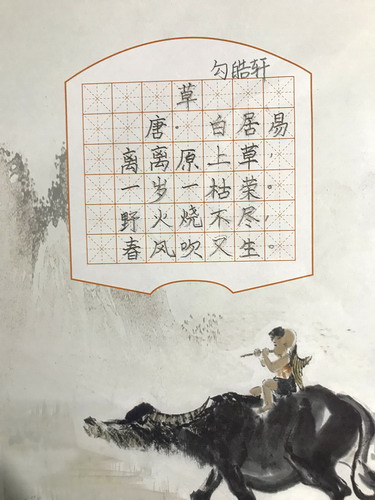 勾皓轩
草
唐·白居易
离离原上草，
一岁一枯荣。
野火烧不尽，
春风吹又生。